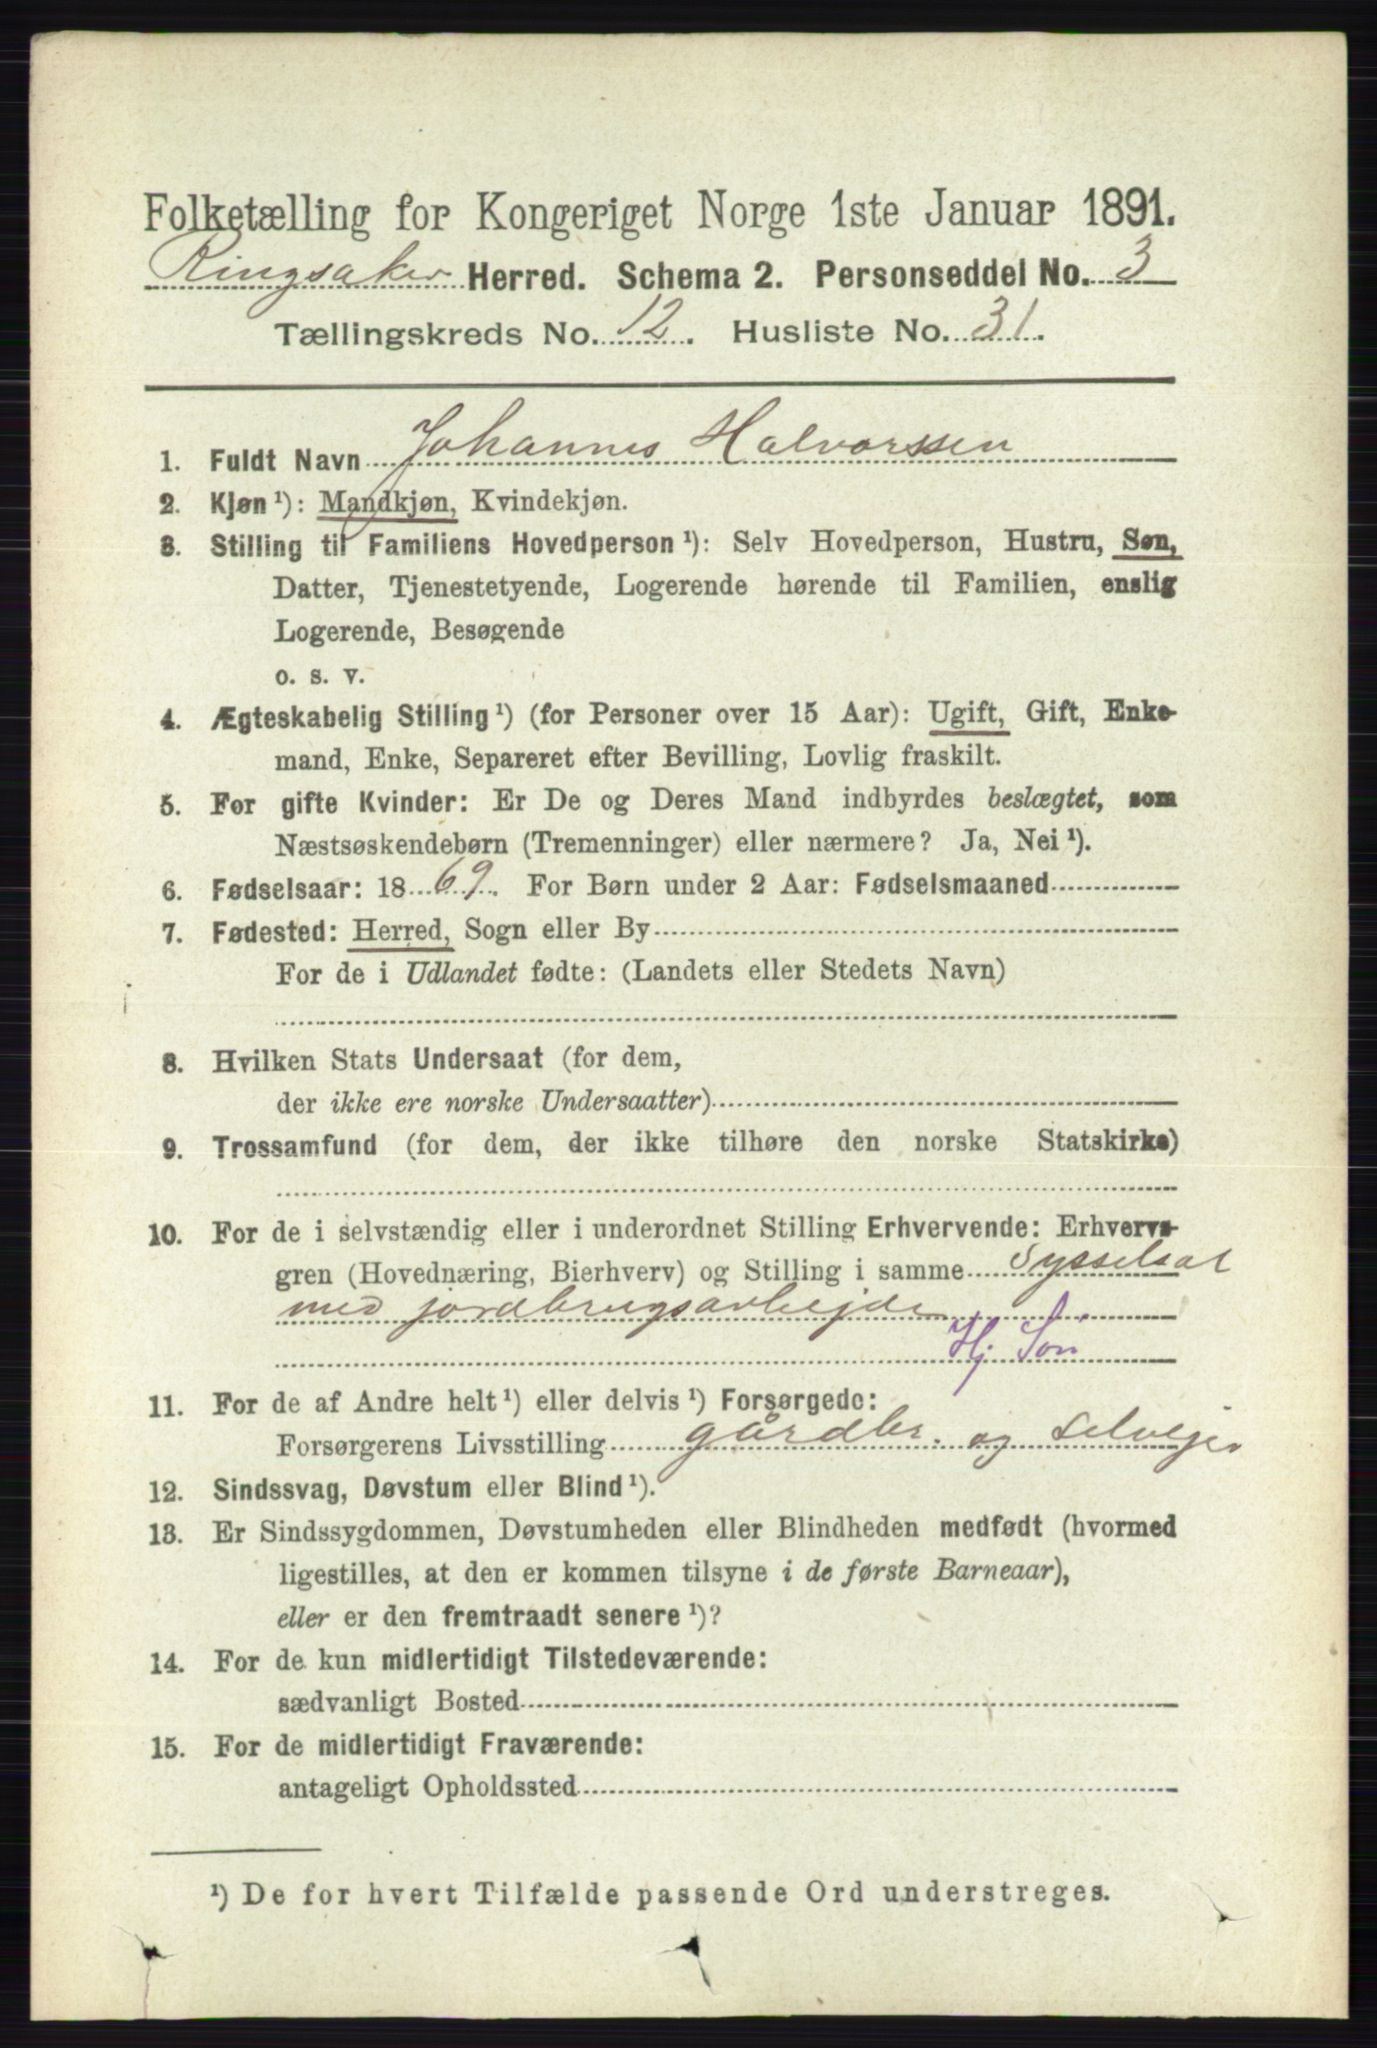 Folketælling for Kongeriget Norge 1ste Januar 1891.
Ringsaker Herred. Schema 2. Personseddel No. 3
Tællingskreds No. 12. Husliste No. 31.
1. Fuldt Navn Johannes Halvorssen
2. Kjøn ¹): Mandkjøn, Kvindekjøn.
3. Stilling til Familiens Hovedperson ¹): Selv Hovedperson, Hustru, Søn,
Datter, Tjenestetyende, Logerende hørende til Familien, enslig
Logerende, Besøgende
o. s. v.
4. Ægteskabelig Stilling ¹) (for Personer over 15 Aar): Ugift, Gift, Enke-
mand, Enke, Separeret efter Bevilling, Lovlig fraskilt.
5. For gifte Kvinder: Er De og Deres Mand indbyrdes beslægtet, som
Næstsøskendebørn (Tremenninger) eller nærmere? Ja, Nei ¹).
6. Fødselsaar: 1869. For Børn under 2 Aar: Fødselsmaaned
7. Fødested: Herred, Sogn eller By
For de i Udlandet fødte: (Landets eller Stedets Navn)
8. Hvilken Stats Undersaat (for dem,
der ikke ere norske Undersaatter)
9. Trossamfund (for dem, der ikke tilhøre den norske Statskirke)
10. For de i selvstændig eller i underordnet Stilling Erhvervende: Erhvervs-
gren (Hovednæring, Bierhverv) og Stilling i samme Sysselsat
med jordbrugsarbejde
Hj. Søn
11. For de af Andre helt ¹) eller delvis ¹) Forsørgede:
Forsørgerens Livsstilling gårdbr. og selvejer
12. Sindssvag, Døvstum eller Blind ¹).
13. Er Sindssygdommen, Døvstumheden eller Blindheden medfødt (hvormed
ligestilles, at den er kommen tilsyne i de første Barneaar),
eller er den fremtraadt senere ¹)?
14. For de kun midlertidigt Tilstedeværende:
sædvanligt Bosted
15. For de midlertidigt Fraværende:
antageligt Opholdssted
¹) De for hvert Tilfælde passende Ord understreges.